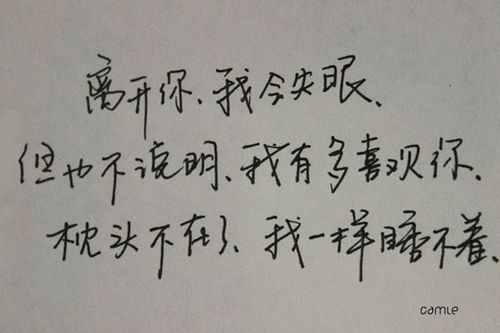 离开你、我会失眠、
但也不说明、我有多喜欢你、
枕头不在了、我一样睡不着、
camle